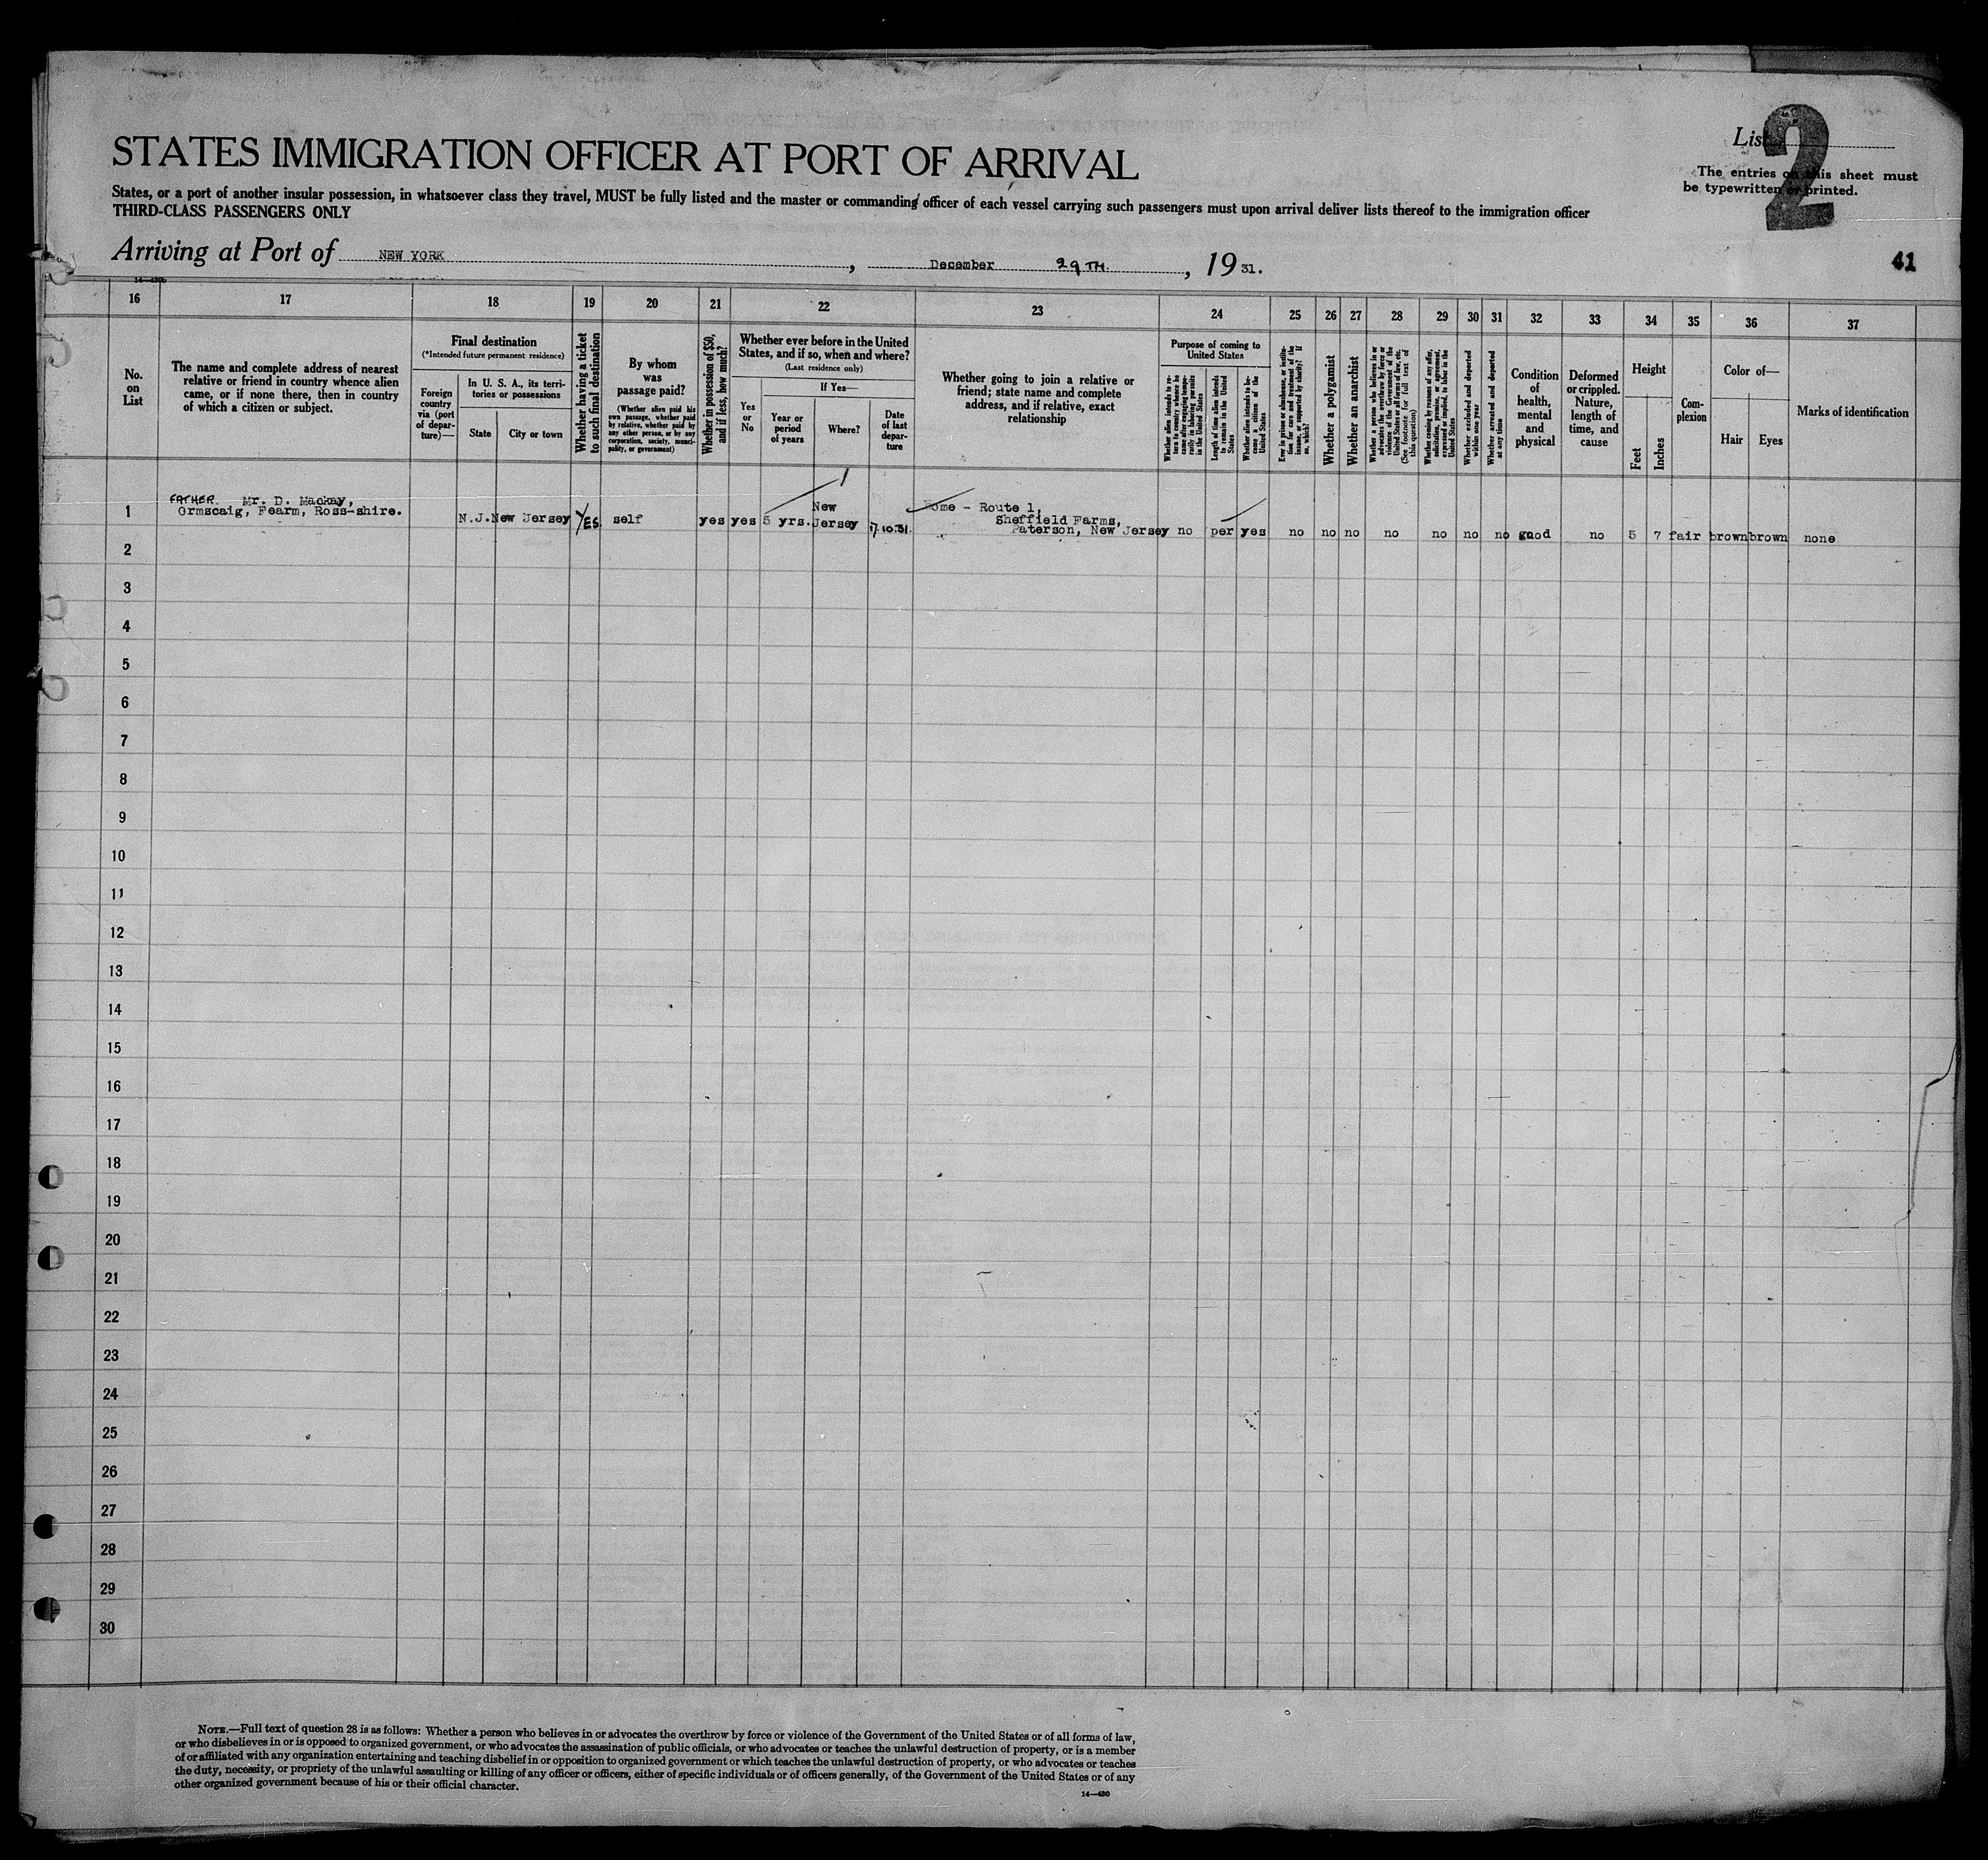 STATES IMMIGRATION OFFICER AT PORT OF ARRIVAL
List
2
The entries on this sheet must
be typewritten or printed.
States, or a port of another insular possession, in whatsoever class they travel, MUST be fully listed and the master or commanding officer of each vessel carrying such passengers must upon arrival deliver lists thereof to the immigration officer
THIRD-CLASS PASSENGERS ONLY
Arriving at Port of NEW YORK, December 29TH., 1931.
41
16 17 18 19 20 21 22 23 24 25 26 27 28 29 30 31 32 33 34 35 36 37
No.
on
List
The name and complete address of nearest
relative or friend in country whence alien
came, or if none there, then in country
of which a citizen or subject.
Final destination
(*Intended future permanent residence)
Foreign
country
via (port
of depar-
ture)—
In U. S. A., its terri-
tories or possessions
State
City or town
Whether having a ticket
to such final destination
By whom
was
passage paid?
(Whether alien paid his
own passage, whether paid
by relative, whether paid by
any other person, or by any
corporation, society, munici-
pality, or government)
Whether in possession of $50,
and if less, how much?
Whether ever before in the United
States, and if so, when and where?
(Last residence only)
Yes
or
No
If Yes—
Year or
period
of years
Where?
Date
of last
depar-
ture
Whether going to join a relative or
friend; state name and complete
address, and if relative, exact
relationship
Purpose of coming to
United States
Whether alien intends to re-
turn to country whence he
came after engaging tempo-
rarily in laboring pursuits
in the United States
Length of time alien intends
to remain in the United
States
Whether alien intends to be-
come a citizen of the
United States
Ever in prison or almshouse, or institu-
tion for care and treatment of the
insane, or supported by charity? If
so, which?
Whether a polygamist
Whether an anarchist
Whether a person who believes in or
advocates the overthrow by force or
violence of the Government of the
United States or all forms of law, etc.
(See footnote for full text of
this question)
Whether coming by reason of any offer,
solicitation, promise, or agreement,
expressed or implied, to labor in the
United States
Whether excluded and deported
within one year
Whether arrested and deported
at any time
Condition
of
health,
mental
and
physical
Deformed
or crippled.
Nature,
length of
time, and
cause
Height
Feet
Inches
Com-
plexion
Color of—
Hair
Eyes
Marks of identification
1
FATHER. Mr. D. Mackay,
Ormscaig, Fearm, Ross-shire.
N.J. New Jersey YES self yes yes 5 yrs. New
Jersey 17.10.31.
Home - Route 1,
Sheffield Farms,
Paterson, New Jersey
no per yes no no no no no no no good no 5 7 fair brown brown none
2
3
4
5
6
7
8
9
10
11
12
13
14
15
16
17
18
19
20
21
22
23
24
25
26
27
28
29
30
NOTE.—Full text of question 28 is as follows: Whether a person who believes in or advocates the overthrow by force or violence of the Government of the United States or of all forms of law,
or who disbelieves in or is opposed to organized government, or who advocates the assassination of public officials, or who advocates or teaches the unlawful destruction of property, or is a member
of or affiliated with any organization entertaining and teaching disbelief in or opposition to organized government or which teaches the unlawful destruction of property, or who advocates or teaches
the duty, necessity, or propriety of the unlawful assaulting or killing of any officer or officers, either of specific individuals or of officers generally, of the Government of the United States or of any
other organized government because of his or their official character.
14—430